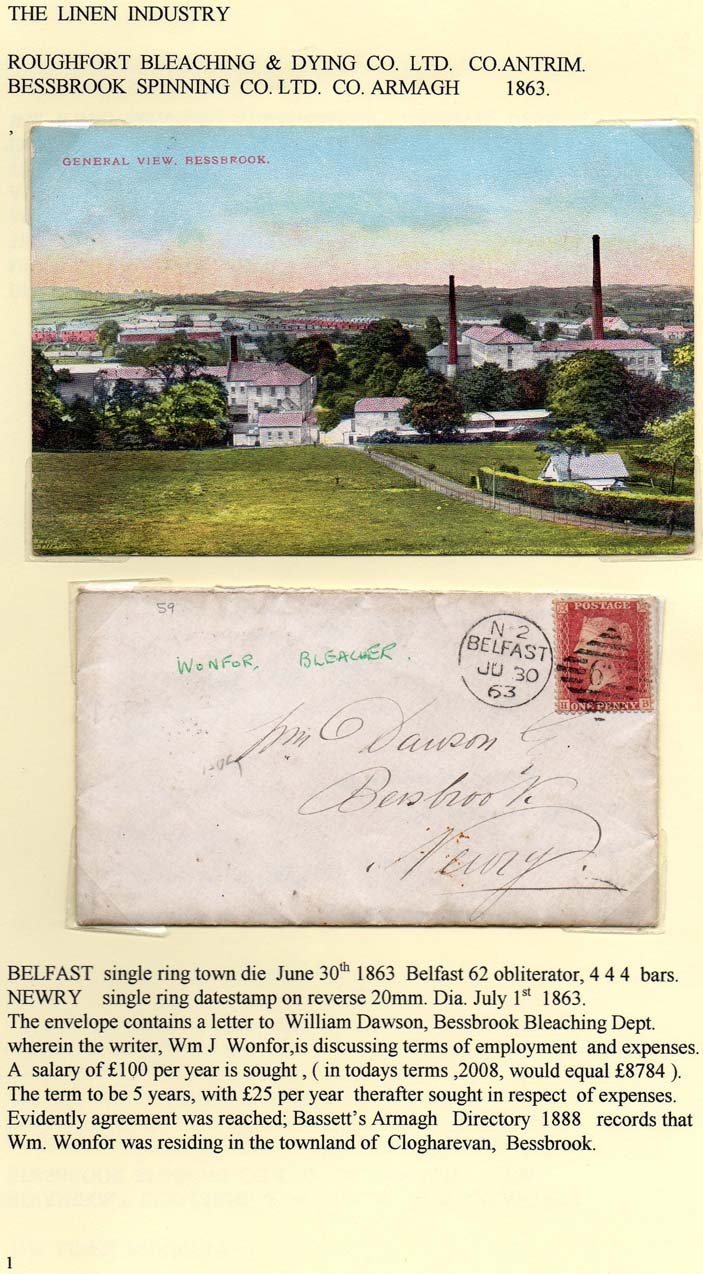 THE LINEN INDUSTRY
ROUGHFORT BLEACHING & DYING CO. LTD. CO.ANTRIM.
BESSBROOK SPINNING CO. LTD. CO. ARMAGH 1863.
,
GENERAL VIEW, BESSBROOK.
59
WONFOR, BLEACHER.
N-2
BELFAST
JU 30
63
POSTAGE
6
H ONE PENNY B
Wm Dawson
Bessbrook
Newry.
BELFAST single ring town die June 30th 1863 Belfast 62 obliterator, 4 4 4 bars.
NEWRY single ring datestamp on reverse 20mm. Dia. July 1st 1863.
The envelope contains a letter to William Dawson, Bessbrook Bleaching Dept.
wherein the writer, Wm J Wonfor,is discussing terms of employment and expenses.
A salary of £100 per year is sought , ( in todays terms ,2008, would equal £8784 ).
The term to be 5 years, with £25 per year therafter sought in respect of expenses.
Evidently agreement was reached; Bassett's Armagh Directory 1888 records that
Wm. Wonfor was residing in the townland of Clogharevan, Bessbrook.
1